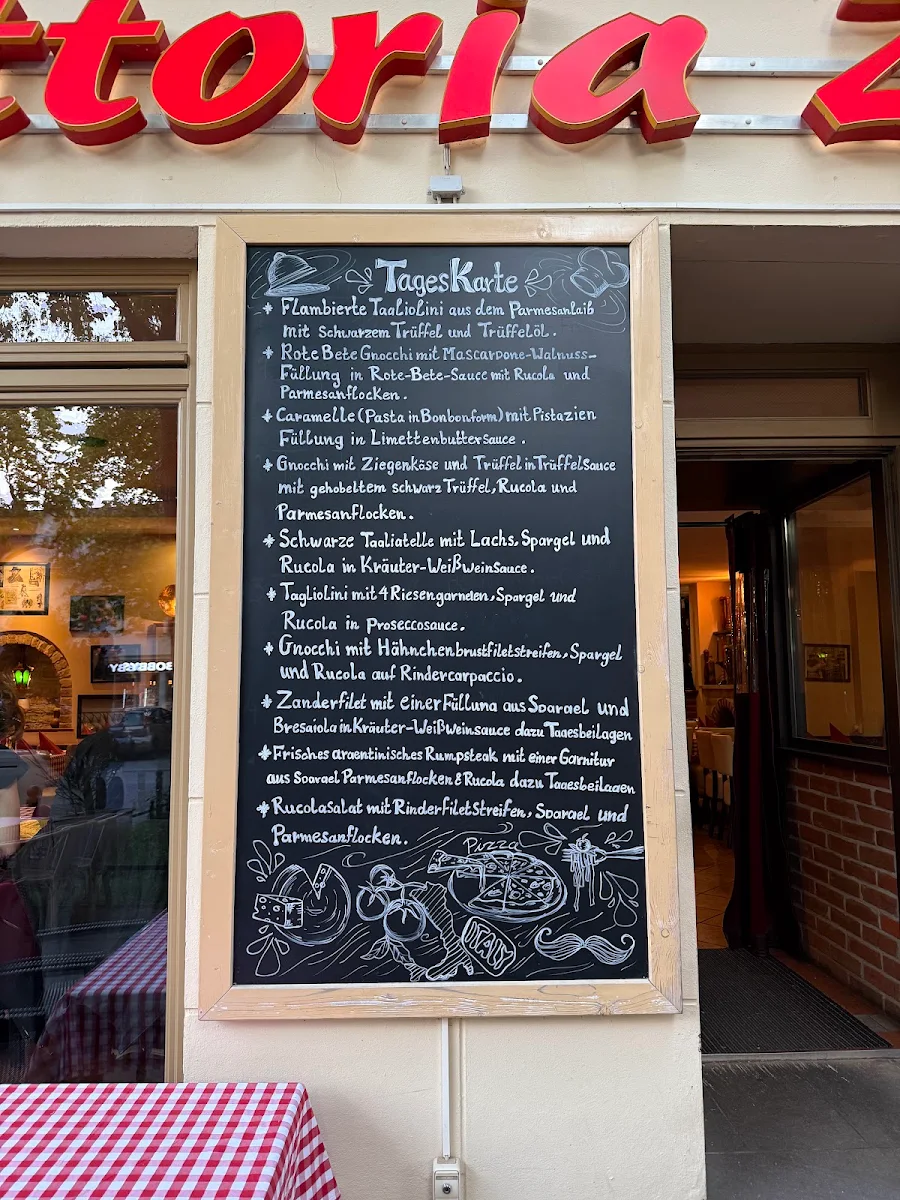 ttoria
TagesKarte
Flambierte Tagliolini aus dem Parmesanlaib
mit Schwarzem Trüffel und Trüffelöl.
Rote Bete Gnocchi mit Mascarpone-Walnuss-
Füllung in Rote-Bete-Sauce mit Rucola und
Parmesanflocken.
Caramelle (Pasta in Bonbonform) mit Pistazien
Füllung in Limettenbuttersauce.
Gnocchi mit Ziegenkäse und Trüffel in Trüffelsauce
mit gehobeltem schwarz Trüffel, Rucola und
Parmesanflocken.
Schwarze Tagliatelle mit Lachs, Spargel und
Rucola in Kräuter-Weißweinsauce.
Tagliolini mit 4 Riesengarnelen, Spargel und
Rucola in Proseccosauce.
Gnocchi mit Hähnchenbrustfiletstreifen, Spargel
und Rucola auf Rindercarpaccio.
Zanderfilet mit einer Füllung aus Spargel und
Bresaiola in Kräuter-Weißweinsauce dazu Tagesbeilagen
Frisches argentinisches Rumpsteak mit einer Garnitur
aus Spargel Parmesanflocken & Rucola dazu Tagesbeilagen
Rucolasalat mit Rinderfiletstreifen, Spargel und
Parmesanflocken.
Pizza
ITALY